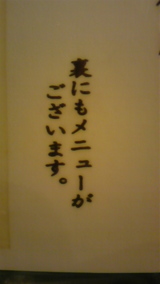 裏にもメニューが
ございます。